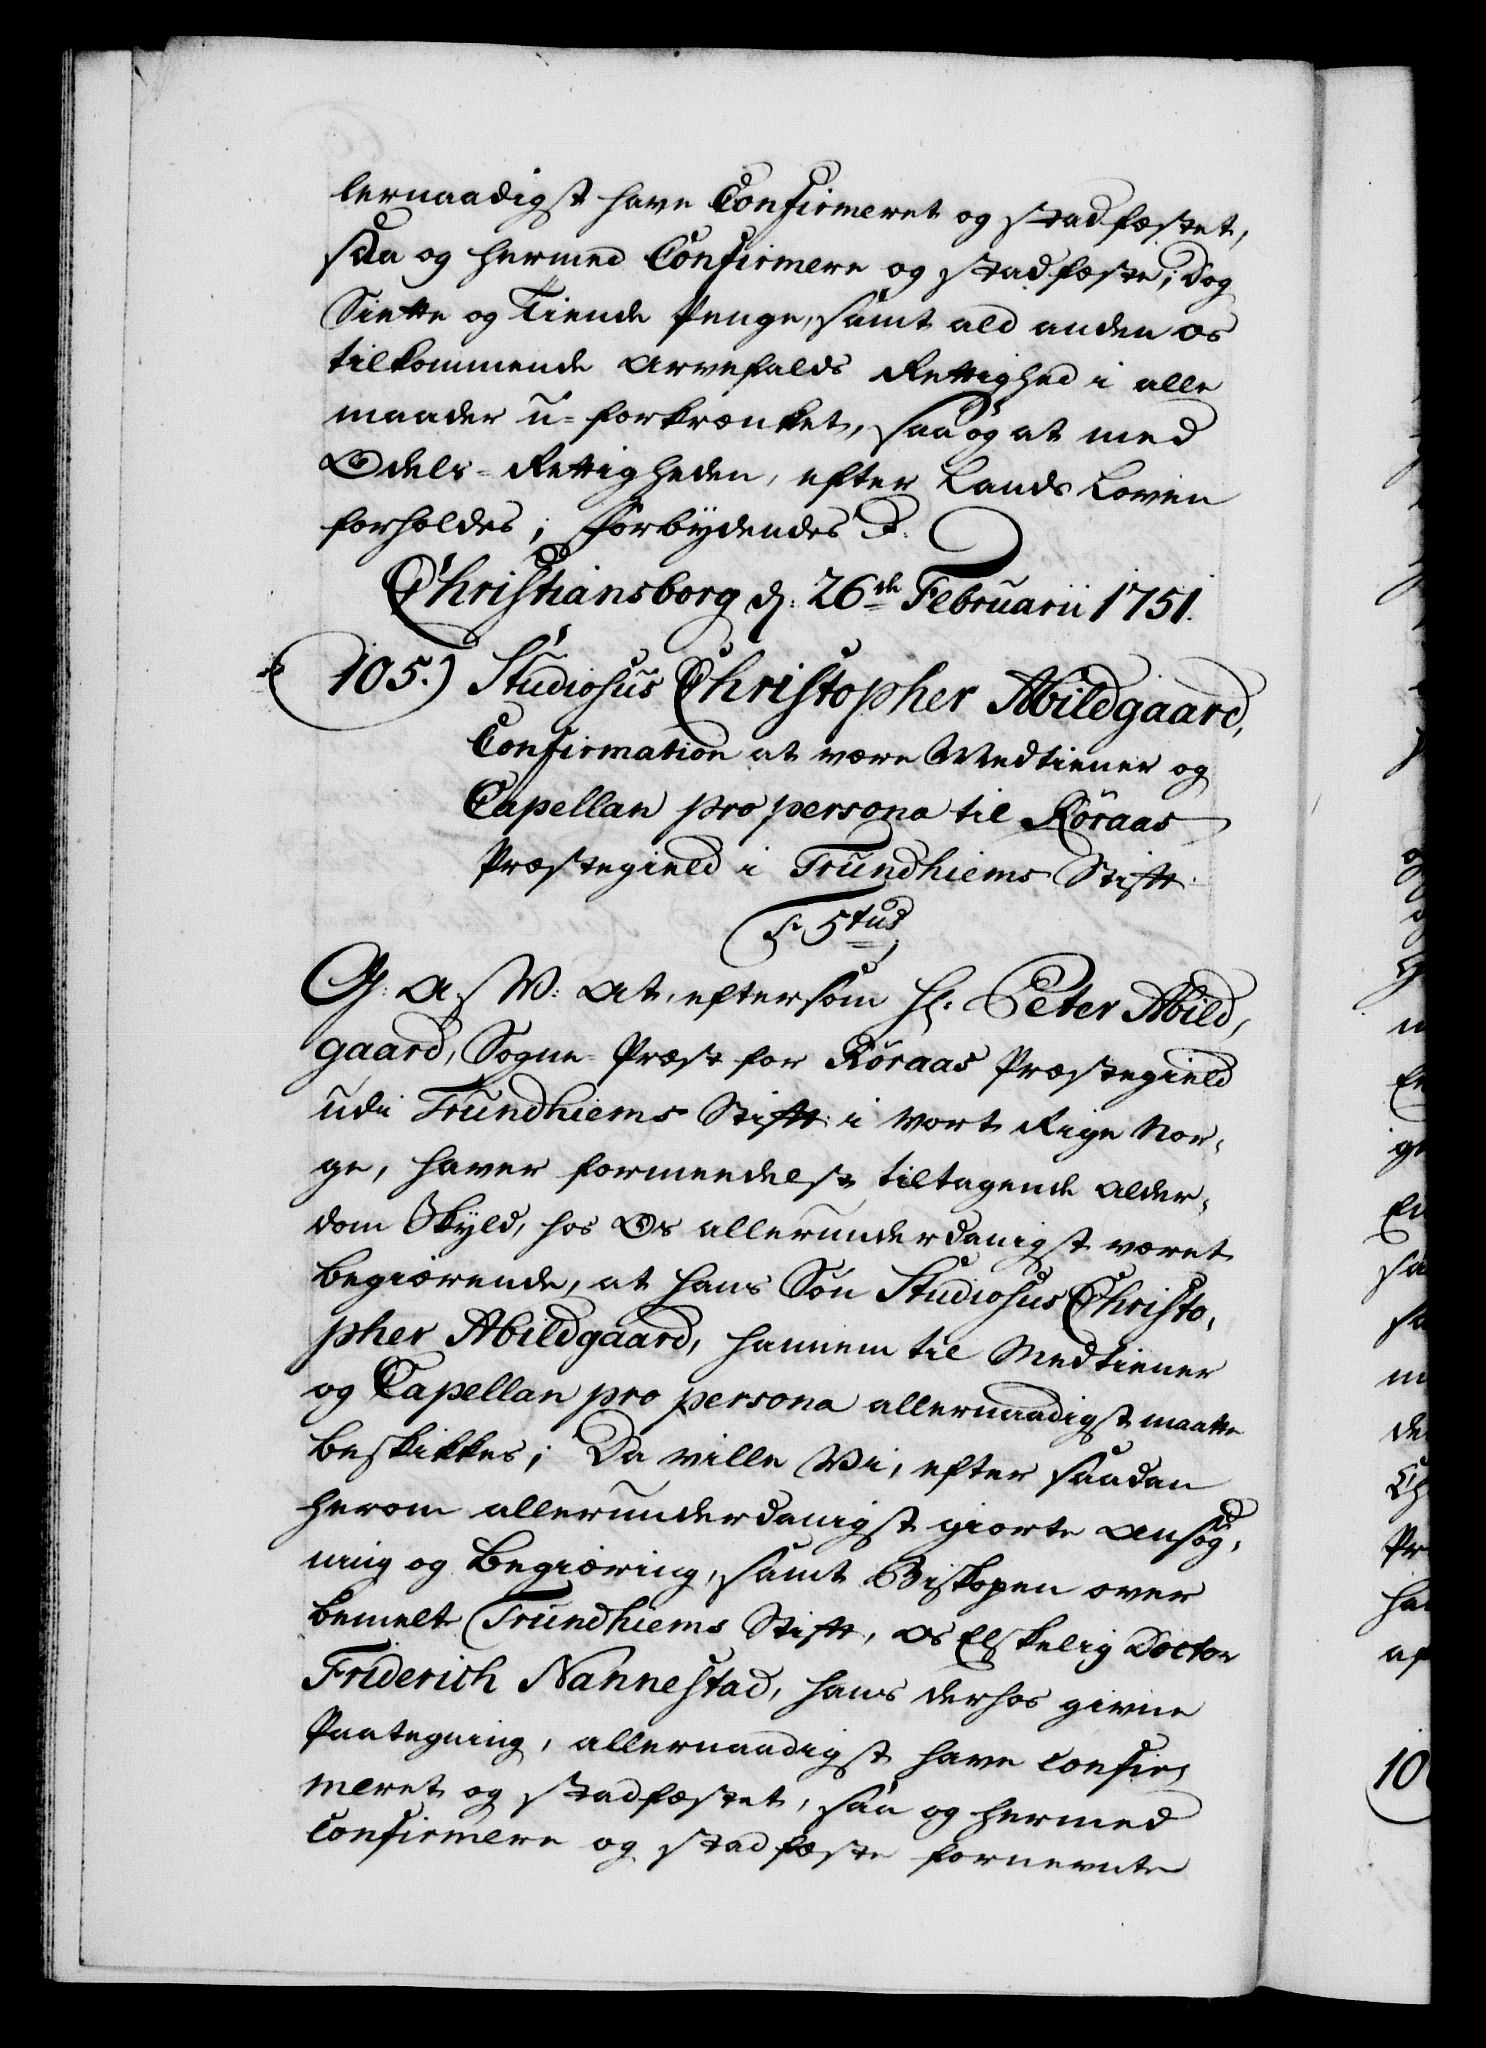 lernaadigst have Confirmeret og stadfæstet,
saa og hermed Confirmere og stadfæste; Dog
Siette og Tiende Penge, samt ald anden os
tilkommende Arvefalds Rettighed i alle
maader u-forkrænket, saa og at med
Odels-Rettigheden, efter Lands Loven
forholdes; Forbydendes &.
Christiansborg d: 26de Februarii 1751.
105.) Studiosus Christopher Abildgaard,
Confirmation at være Medtiener og
Capellan pro persona til Røraas
Præstegield i Trundhiems Stift.
G: A: V: At, eftersom Hr: Peter Abild,
gaard, Sogne-Præst for Røraas Præstegield
udi Trundhiems Stift i Vort Rige Nor-
ge, haver formedelst tiltagende Alder-
dom Skyld, hos Os allerunderdanigst været
begiærende, at hans Søn Studiosus Christo,
pher Abildgaard, hannem til Medtiener
og Capellan pro persona allernaadigst maatte
beskikkes; Da ville Vi, efter saadan
herom allerunderdanigst giorte Ansøg,
ning og Begiæring, samt Biskopen over
bemelte Trundhiems Stift, Os Elskelig Doctor
Friderich Nannestad, hans derhos givne
Paategning, allernaadigst have Confir-
meret og stadfæstet, saa og hermed
Confirmere og stadfæste fornevnte